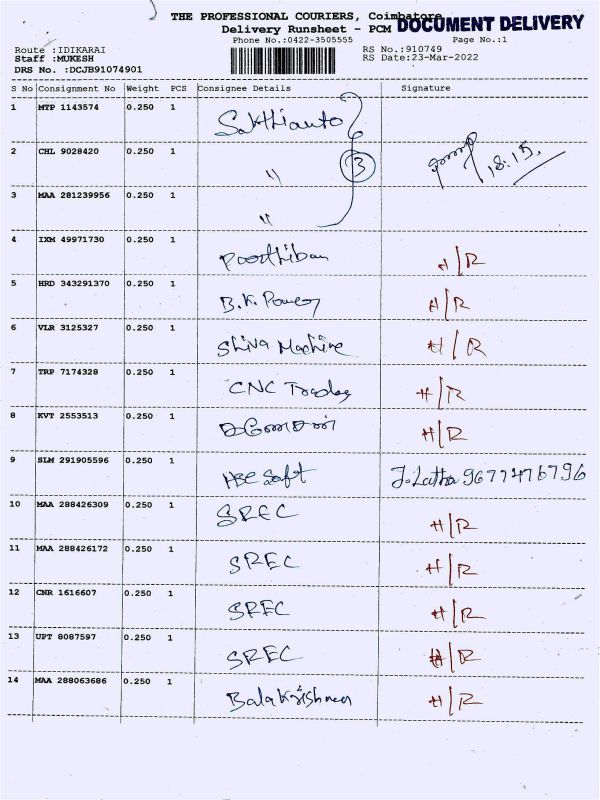 THE PROFESSIONAL COURIERS, Coimbatore
DOCUMENT DELIVERY
Delivery Runsheet - PCM
Phone No.:0422-3505555 Page No.:1
Route :IDIKARAI RS No.:910749
Staff :MUKESH RS Date:23-Mar-2022
DRS No. :DCJB91074901
S No Consignment No Weight PCS Consignee Details Signature
1 MTP 1143574 0.250 1 Sakthiauto
2 CHL 9028420 0.250 1 " 3 18:15
3 MAA 281239956 0.250 1 "
4 IXM 49971730 0.250 1 Parthiban H/R
5 HRD 343291370 0.250 1 B.K. Power H/R
6 VLR 3125327 0.250 1 Shiva Machine H/R
7 TRP 7174328 0.250 1 CNC H/R
8 KVT 2553513 0.250 1 H/R
9 SLM 291905596 0.250 1 HSC Saft J.Latha 9677476796
10 MAA 288426309 0.250 1 SREC H/R
11 MAA 288426172 0.250 1 SREC H/R
12 CNR 1616607 0.250 1 SREC H/R
13 UPT 8087597 0.250 1 SREC H/R
14 MAA 288063686 0.250 1 Balakrishnan H/R